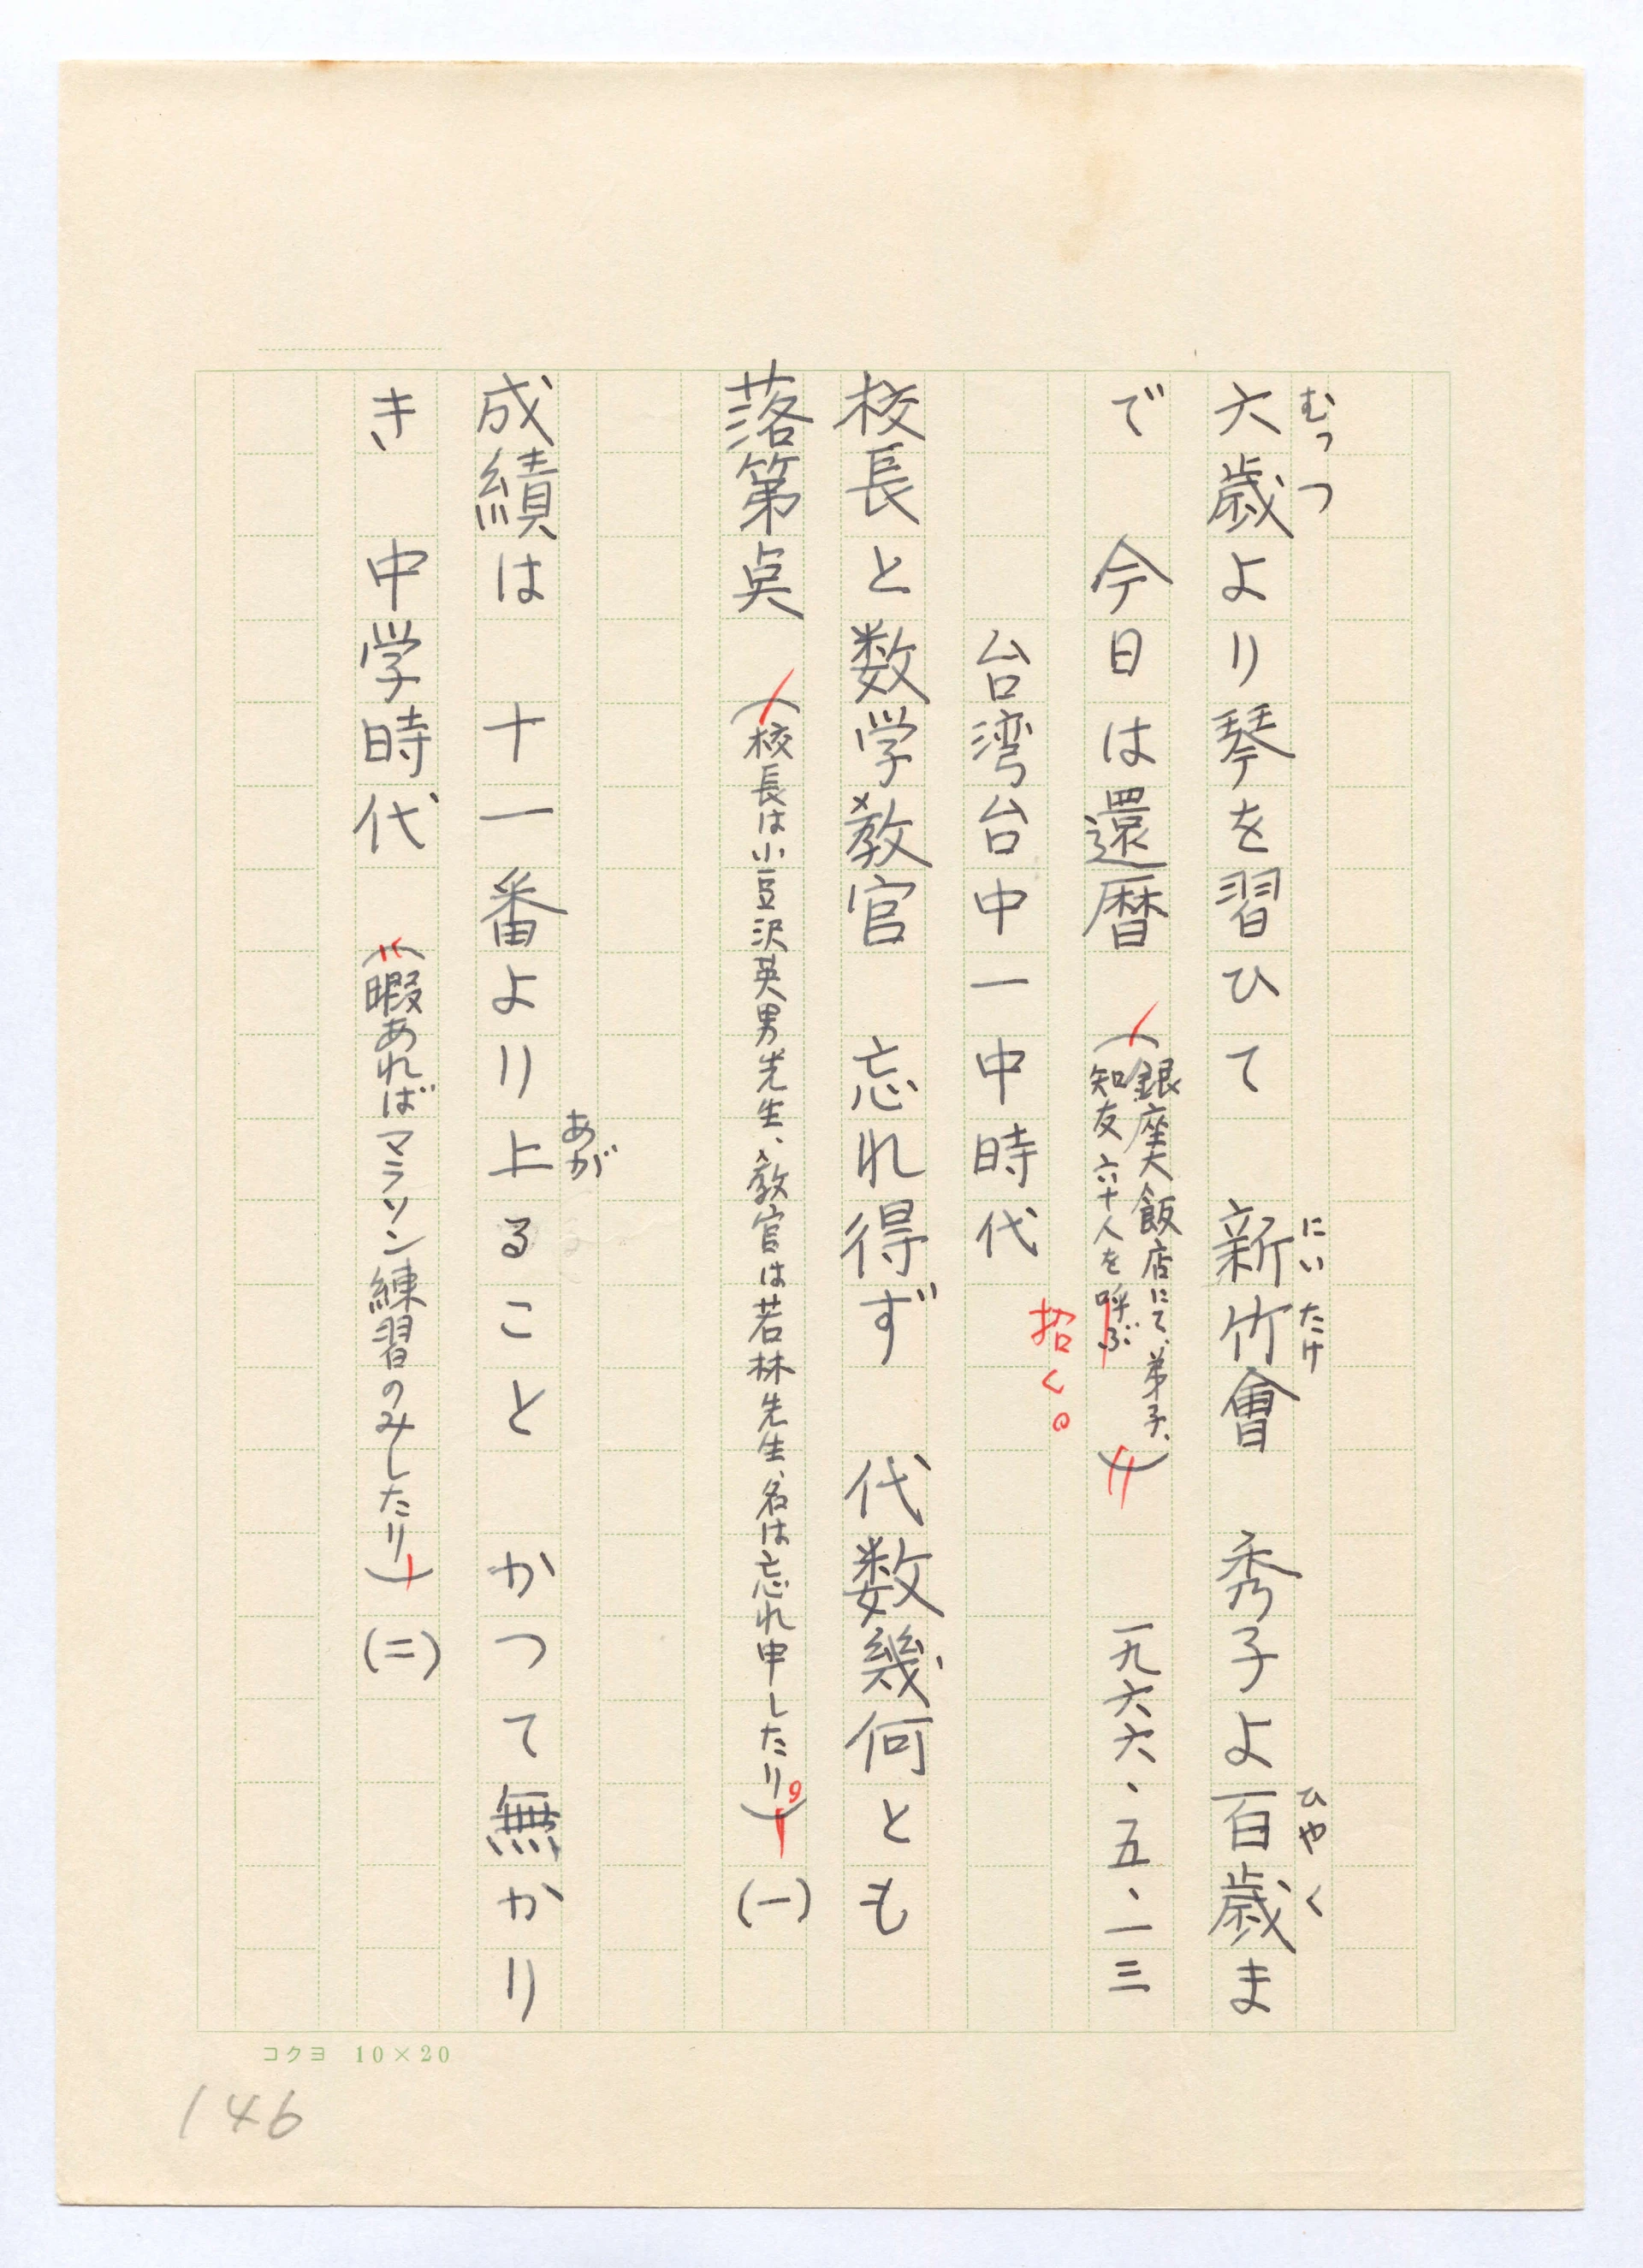 六歳より琴を習ひて　新竹會　秀子よ百歳ま
むっつ
にいたけ
ひやく
で　今日は還暦　(銀座大飯店にて、弟子、
知友六十人を呼ぶ)　一九六六・五・一三
招く。
台湾台中一中時代
校長と数学教官　忘れ得ず　代数幾何とも
落第点　(校長は小豆沢英男先生、教官は若林先生、名は忘れ申したり。)(一)
成績は　十一番より上ること　かつて無かり
あが
き　中学時代　(暇あればマラソン練習のみしたり)(二)
コクヨ 10×20
146